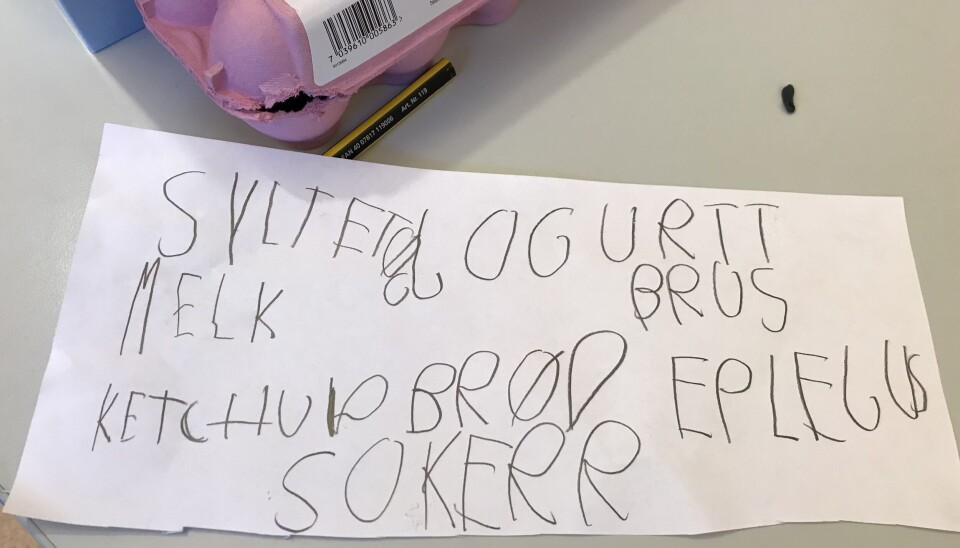 7 039610 003863
AN 40 07817 119006 Art. Nr. 119
SYLTETØJ JOGURTT
MELK BRUS
KETCHUP BRØD EPLEJUS
SOKERR